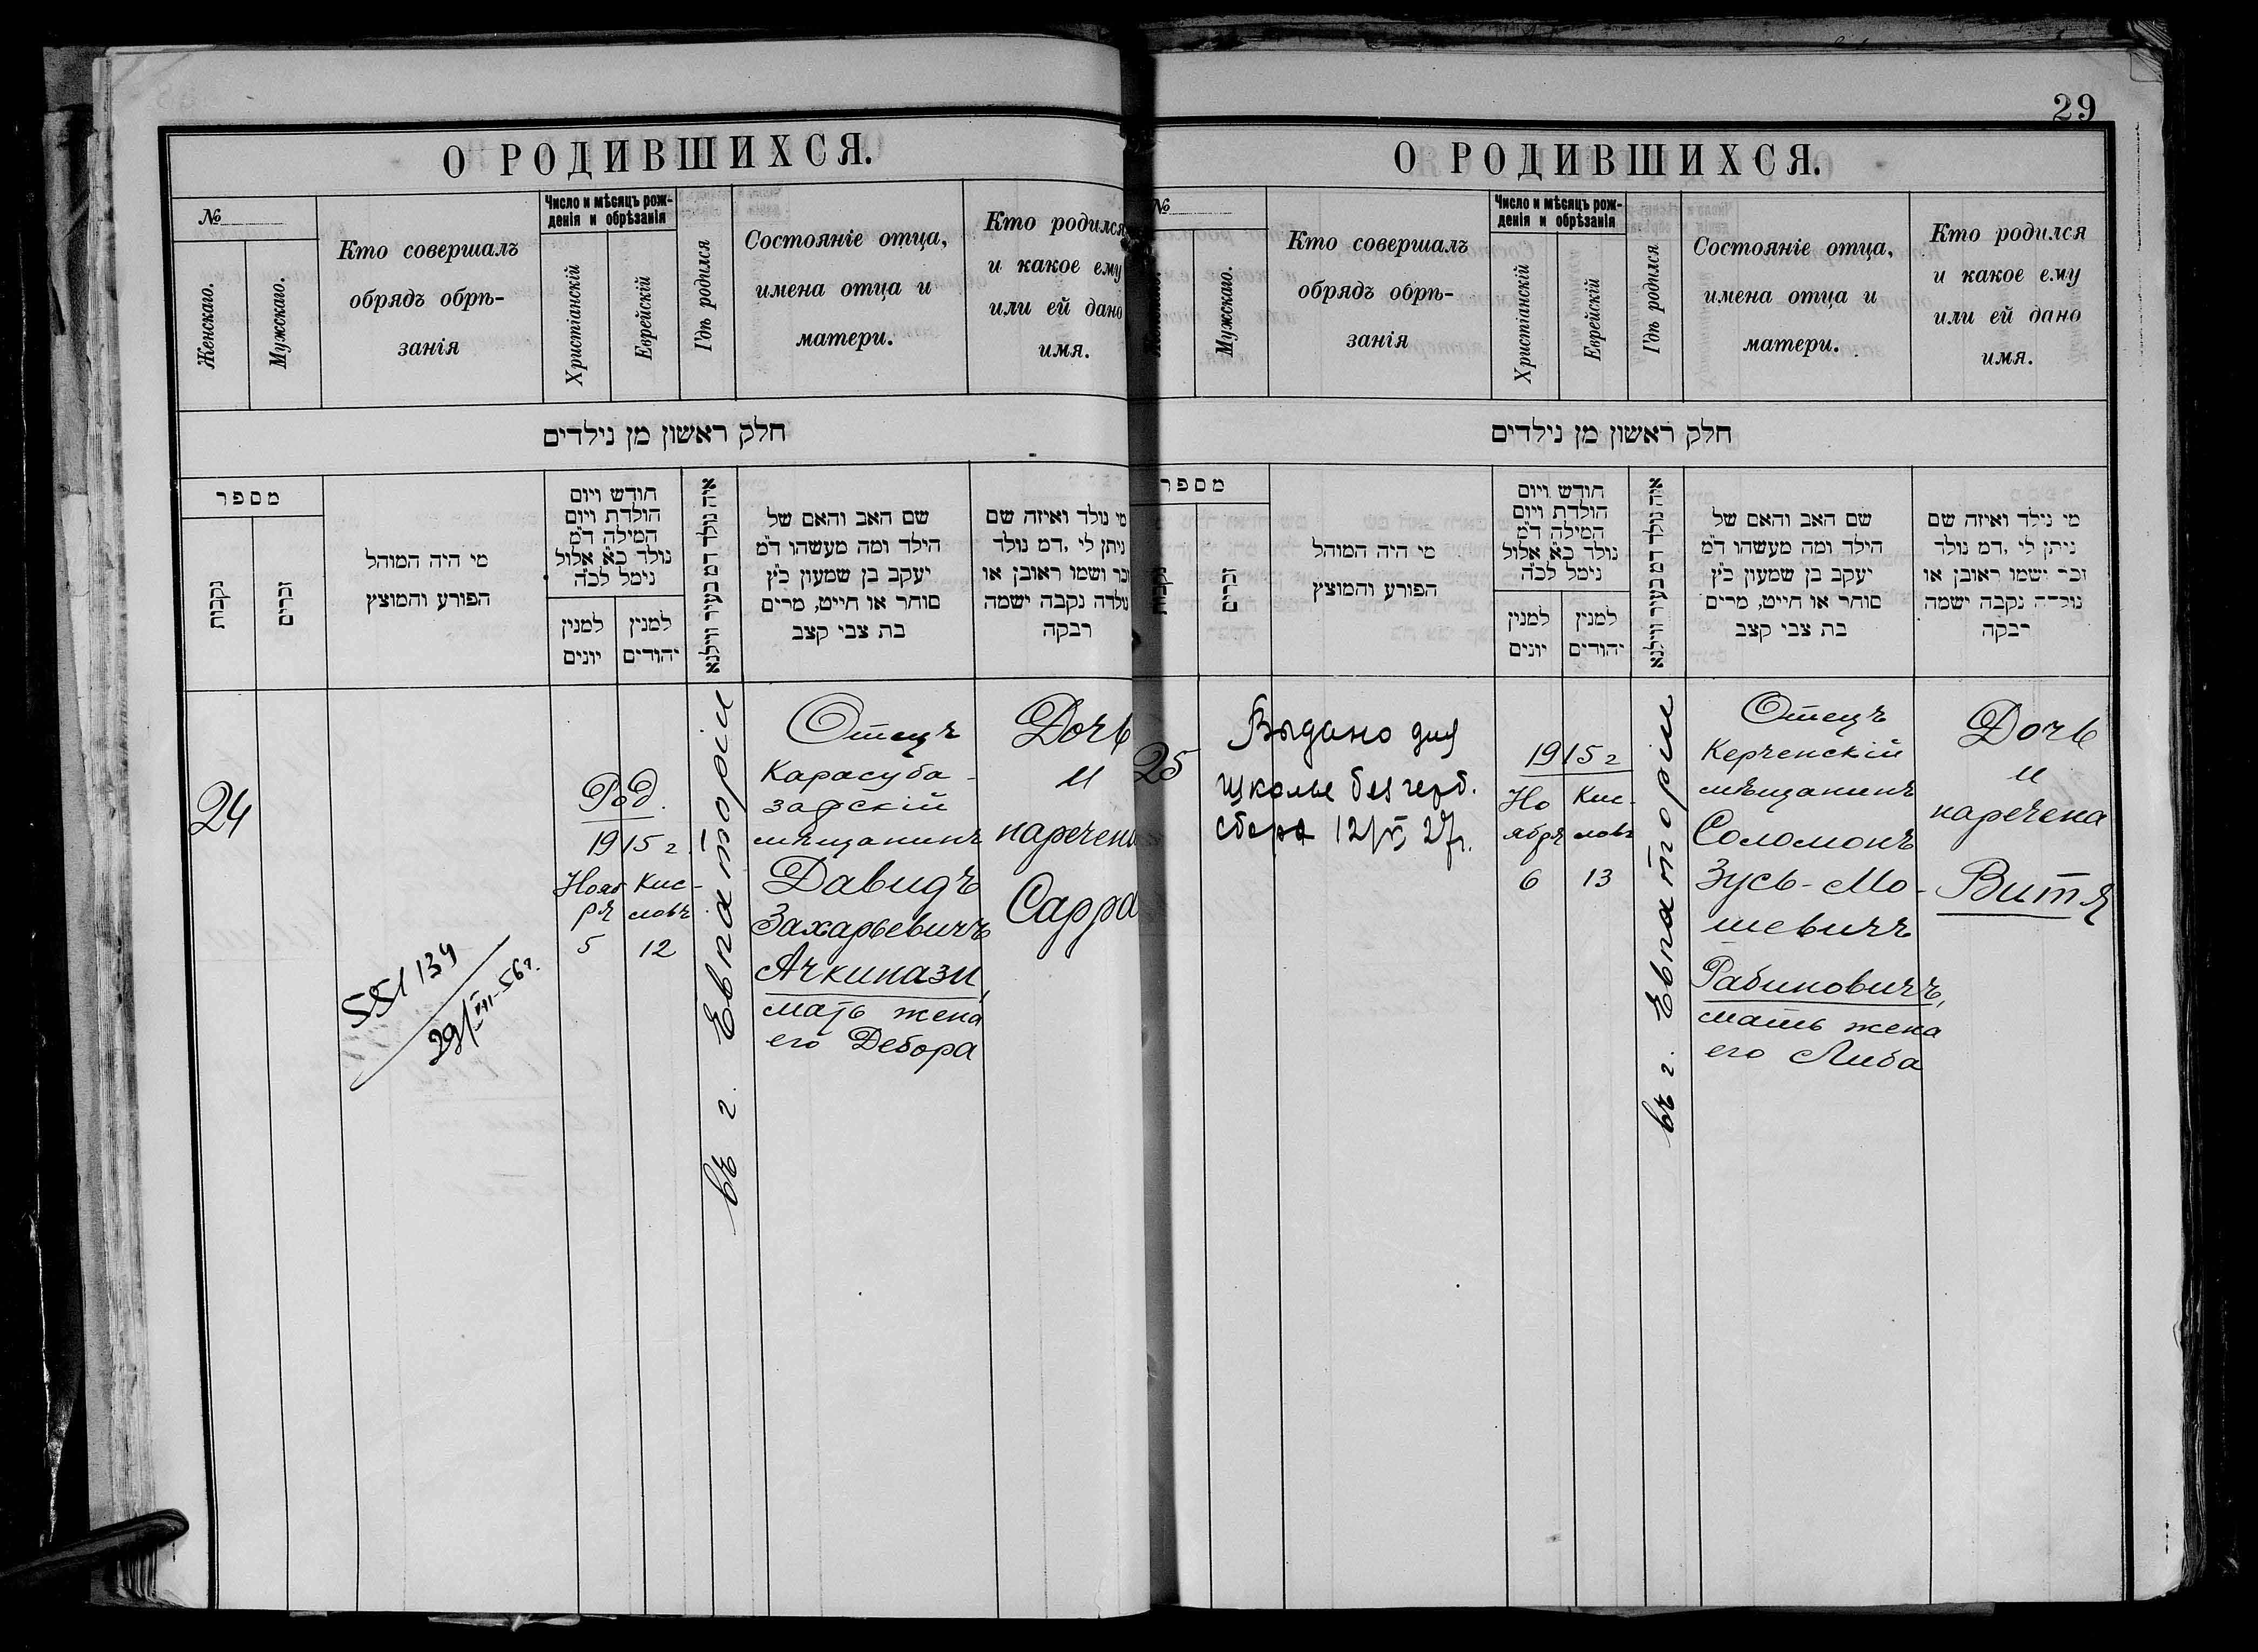 О РОДИВШИХСЯ.
№
Женскаго.
Мужскаго.
Кто совершалъ
обрядъ обрѣ-
занія
Число и мѣсяцъ рож-
денія и обрѣзанія
Христіанскій
Еврейскій
Гдѣ родился
Состояніе отца,
имена отца и
матери.
Кто родился
и какое ему
или ей дано
имя.
חלק ראשון מן נילדים
מספר
נקבות
זכרים
מי היה המוהל
הפורע והמוצץ
חודש ויום
הולדת ויום
המילה ד"מ
נולד כ"א אלול
נימל לכ"ה
למנין
יונים
למנין
יהודים
איה נולד דמ בעיר ווילנא
שם האב והאם של
הילד ומה מעשהו ד"מ
יעקב בן שמעון כ"ץ
סוחר או חייט, מרים
בת צבי קצב
מי נולד ואיזה שם
ניתן לי ,דמ נולד
זכר ושמו ראובן או
נולדה נקבה ישמה
רבקה
24
551139
29/VIII-56г.
Род.
1915 г.
Нояб
ря
5
Кис-
ловъ
12
въ г. Евпаторіи
Отецъ
Карасуба-
зарскій
мѣщанинъ
Давидъ
Захарьевичъ
Ачкинази,
мать жена
его Дебора
Дочь
и
наречена
Сарра
29
О РОДИВШИХСЯ.
№
Женскаго.
Мужскаго.
Кто совершалъ
обрядъ обрѣ-
занія
Число и мѣсяцъ рож-
денія и обрѣзанія
Христіанскій
Еврейскій
Гдѣ родился
Состояніе отца,
имена отца и
матери.
Кто родился
и какое ему
или ей дано
имя.
חלק ראשון מן נילדים
מספר
נקבות
זכרים
מי היה המוהל
הפורע והמוצץ
חודש ויום
הולדת ויום
המילה ד"מ
נולד כ"א אלול
נימל לכ"ה
למנין
יונים
למנין
יהודים
איה נולד דמ בעיר ווילנא
שם האב והאם של
הילד ומה מעשהו ד"מ
יעקב בן שמעון כ"ץ
סוחר או חייט, מרים
בת צבי קצב
מי נילד ואיזה שם
ניתן לי ,דמ נולד
זכר ישמו ראובן או
נולדה נקבה ישמה
רבקה
25
Выдано для
школы без герб.
сбора 27г.
1915 г
Но
ябрѧ
6
Кис-
ловъ
13
въ г. Евпаторіи
Отецъ
Керченскій
мѣщанинъ
Соломонъ
Зусь-Мо-
шевичъ
Рабиновичъ,
мать жена
его Либа
Дочь
и
наречена
Витя